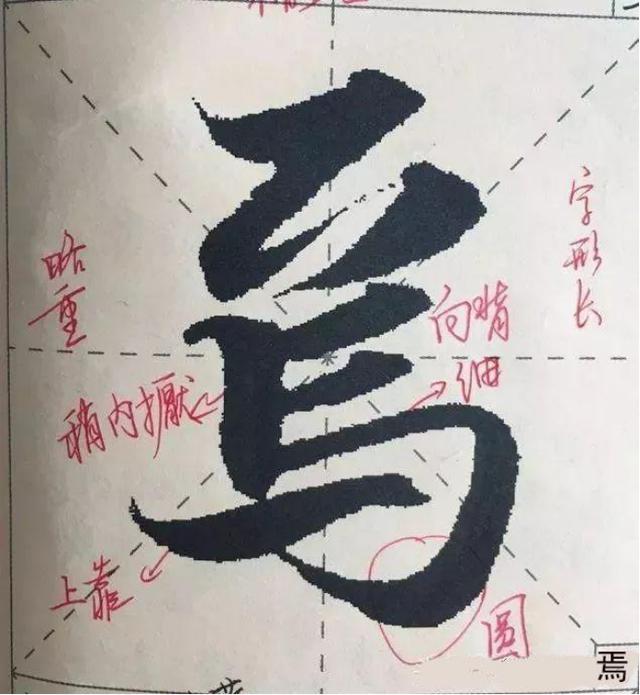 焉
字形长
略重
向啃
细
稍内擫
上靠
圆
焉